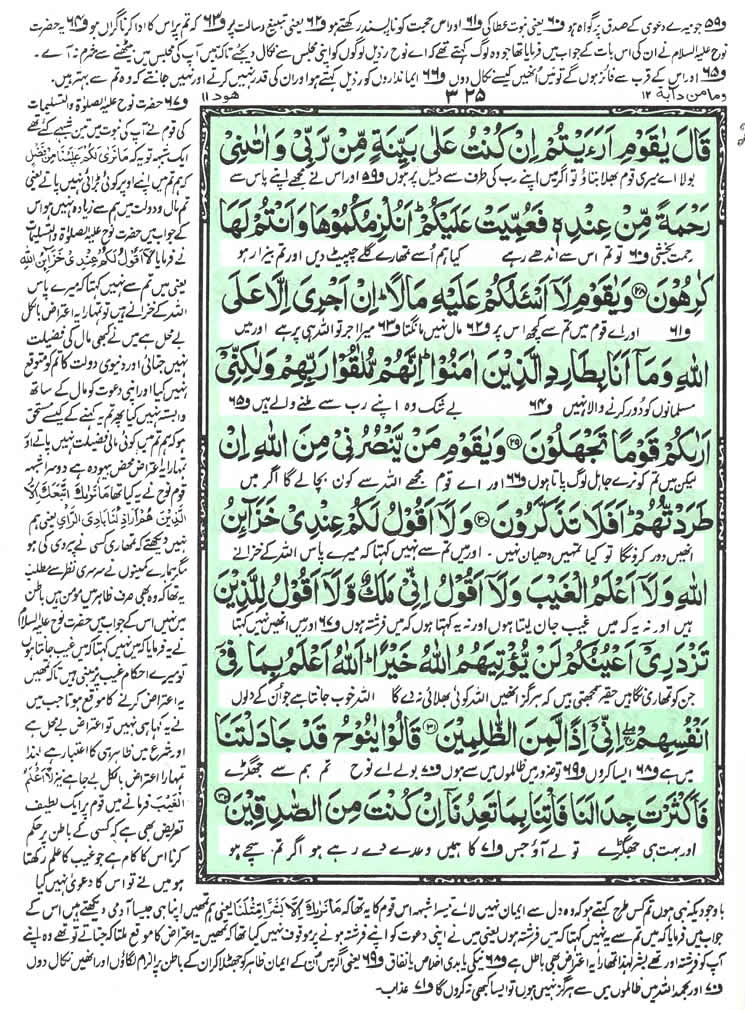 و۵۹ جو میرے دعوی کے صدق پر گواہ ہو و۶۰ یعنی نبوت عطا کی و۶۱ اور اس حجت کو ناپسند رکھتے ہو و۶۲ یعنی تبلیغ رسالت پر و۶۳ کہ تم پر اس کا ادا کرنا گراں ہو و۶۴ یہ حضرت
نوح علیہ السلام نے ان کی اس بات کے جواب میں فرمایا تھا جو وہ لوگ کہتے تھے کہ اے نوح رذیل لوگوں کو اپنی مجلس سے نکال دیجئے تاکہ ہمیں آپ کی مجلس میں بیٹھنے سے شرم نہ آئے ۔
و۶۵ اور اس کے قرب سے فائز ہوں گے تو میں انھیں کیسے نکال دوں و۶۶ ایمانداروں کو رذیل کہتے ہو اور ان کی قدر نہیں کرتے اور نہیں جانتے کہ وہ تم سے بہتر ہیں۔
وما من دآبة ۱۲
۳۲۵
هود ۱۱
قَالَ يٰقَوْمِ اَرَءَيْتُمْ اِنْ كُنْتُ عَلٰى بَيِّنَةٍ مِّنْ رَّبِّىْ وَاٰتٰىنِىْ
بولا اے میری قوم بھلا بتاؤ تو اگر میں اپنے رب کی طرف سے دلیل پر ہوں و۵۹ اور اس نے مجھے اپنے پاس سے
رَحْمَةً مِّنْ عِنْدِهٖ فَعُمِّيَتْ عَلَيْكُمْ ؕ اَنُلْزِمُكُمُوْهَا وَاَنْتُمْ لَهَا
رحمت بخشی و۶۰ تو تم اس سے اندھے رہے کیا ہم اُسے تمھارے گلے چپیٹ دیں اور تم بیزار ہو
كٰرِهُوْنَ ۲۸ وَيٰقَوْمِ لَاۤ اَسْـَٔلُكُمْ عَلَيْهِ مَالًا ؕ اِنْ اَجْرِىَ اِلَّا عَلَى
و۶۱ اور اے قوم میں تم سے کچھ اس پر و۶۲ مال نہیں مانگتا و۶۳ میرا اجر تو اللہ ہی پر ہے اور میں
اللّٰهِ وَمَاۤ اَنَا بِطَارِدِ الَّذِيْنَ اٰمَنُوْا ؕ اِنَّهُمْ مُّلٰقُوْا رَبِّهِمْ وَلٰكِنِّىْۤ
مسلمانوں کو دور کرنے والا نہیں و۶۴ بے شک وہ اپنے رب سے ملنے والے ہیں و۶۵
اَرٰىكُمْ قَوْمًا تَجْهَلُوْنَ ۲۹ وَيٰقَوْمِ مَنْ يَّنْصُرُنِىْ مِنَ اللّٰهِ اِنْ
لیکن میں تم کو نرے جاہل لوگ پاتا ہوں و۶۶ اور اے قوم مجھے اللہ سے کون بچالے گا اگر میں
طَرَدْتُّهُمْ ؕ اَفَلَا تَذَكَّرُوْنَ ۳۰ وَلَاۤ اَقُوْلُ لَكُمْ عِنْدِىْ خَزَآئِنُ
انھیں دور کروں گا تو کیا تمہیں دھیان نہیں ۔ اور میں تم سے نہیں کہتا کہ میرے پاس اللہ کے خزانے
اللّٰهِ وَلَاۤ اَعْلَمُ الْغَيْبَ وَلَاۤ اَقُوْلُ اِنِّىْ مَلَكٌ وَّلَاۤ اَقُوْلُ لِلَّذِيْنَ
ہیں اور نہ یہ کہ میں غیب جان لیتا ہوں اور نہ یہ کہتا ہوں کہ میں فرشتہ ہوں و۶۷ اور میں انھیں نہیں کہتا
تَزْدَرِىْۤ اَعْيُنُكُمْ لَنْ يُّؤْتِيَهُمُ اللّٰهُ خَيْرًا ؕ اَللّٰهُ اَعْلَمُ بِمَا فِىْۤ
جن کو تمھاری نگاہیں حقیر سمجھتی ہیں کہ ہرگز انھیں اللہ کوئی بھلائی نہ دے گا اللہ خوب جانتا ہے جو ان کے دلوں
اَنْفُسِهِمْ ۚ اِنِّىْۤ اِذًا لَّمِنَ الظّٰلِمِيْنَ ۳۱ قَالُوْا يٰنُوْحُ قَدْ جَادَلْتَنَا
میں ہے و۶۸ ایسا کروں و۶۹ تو ضرور میں ظالموں میں سے ہوں و۷۰ بولے اے نوح تم ہم سے جھگڑے
فَاَكْثَرْتَ جِدَالَنَا فَاْتِنَا بِمَا تَعِدُنَاۤ اِنْ كُنْتَ مِنَ الصّٰدِقِيْنَ ۳۲
اور بہت ہی جھگڑے تو لے آؤ جس و۷۱ کا ہمیں وعدے دے رہے ہو اگر تم سچے ہو
و۶۷ حضرت نوح علیہ الصلوٰۃ والتسلیمات
کی قوم نے آپ کی نبوت میں تین شبہے کئے تھے
ایک شبہہ تو یہ کہ مَا نَرٰى لَكُمْ عَلَيْنَا مِنْ فَضْلٍ
کہ ہم تم میں اپنے اوپر کوئی بڑائی نہیں پاتے یعنی
تم مال و دولت میں ہم سے زیادہ نہیں ہو اس
کے جواب میں حضرت نوح علیہ الصلوٰۃ والتسلیمات
نے فرمایا لَاۤ اَقُوْلُ لَكُمْ عِنْدِىْ خَزَآئِنُ اللّٰهِ
یعنی میں تم سے نہیں کہتا کہ میرے پاس
اللہ کے خزانے ہیں تو تمہارا یہ اعتراض بالکل
بے محل ہے میں نے کبھی مال کی فضیلت
نہیں جتائی اور دنیوی دولت کا تم کو متوقع
نہیں کیا اور اپنی دعوت کو مال کے ساتھ
وابستہ نہیں کیا پھر تم یہ کہنے کے کیسے مستحق
ہو کہ ہم تم میں کوئی مالی فضیلت نہیں پاتے اور
تمہارا یہ اعتراض محض بیہودہ ہے دوسرا شبہہ
قوم نوح نے یہ کیا تھا مَا نَرٰىكَ اتَّبَعَكَ اِلَّا
الَّذِيْنَ هُمْ اَرَاذِلُنَا بَادِىَ الرَّاْىِ یعنی ہم
نہیں دیکھتے کہ تمھاری کسی نے پیروی کی ہو
مگر ہمارے کمینوں نے سرسری نظر سے مطلب
یہ تھا کہ وہ بھی صرف ظاہر میں مؤمن ہیں باطن
میں نہیں اس کے جواب میں حضرت نوح علیہ السلام
نے یہ فرمایا کہ میں نہیں کہتا کہ میں غیب جانتا ہوں
تو میرے احکام غیب پر مبنی ہیں تاکہ تمھیں
یہ اعتراض کرنے کا موقع ہوتا جب میں
نے یہ کہا ہی نہیں تو اعتراض بے محل ہے
اور شرع میں ظاہر ہی کا اعتبار ہے لہٰذا
تمہارا اعتراض بالکل بے جا ہے نیز لَاۤ اَعْلَمُ
الْغَيْبَ فرمانے میں قوم پر ایک لطیف
تعریض بھی ہے کہ کسی کے باطن پر حکم
کرنا اس کا کام ہے جو غیب کا علم رکھتا
ہو میں نے تو اس کا دعویٰ نہیں کیا
باوجودیکہ نبی ہوں تم کس طرح کہتے ہو کہ وہ دل سے ایمان نہیں لائے تیسرا شبہہ اس قوم کا یہ تھا کہ مَا نَرٰىكَ اِلَّا بَشَرًا مِّثْلَنَا یعنی ہم تمھیں اپنا ہی جیسا آدمی دیکھتے ہیں اس کے
جواب میں فرمایا کہ میں تم سے یہ نہیں کہتا کہ میں فرشتہ ہوں یعنی میں نے اپنی دعوت کو اپنے فرشتہ ہونے پر موقوف نہیں کیا تھا کہ تمھیں یہ اعتراض کا موقع ملتا کہ جتاتے تو تھے وہ اپنے
آپ کو فرشتہ اور تھے بشر لہٰذا تمھارا یہ اعتراض بھی باطل ہے و۶۸ نیکی یا بدی اخلاص یا نفاق و۶۹ یعنی اگر میں ان کے ایمان ظاہر کو جھٹلا کر ان کے باطن پر الزام لگاؤں اور انھیں نکال دوں
و۷۰ اور بحمد اللہ میں ظالموں میں سے ہرگز نہیں ہوں تو ایسا کبھی نہ کروں گا و۷۱ عذاب۔